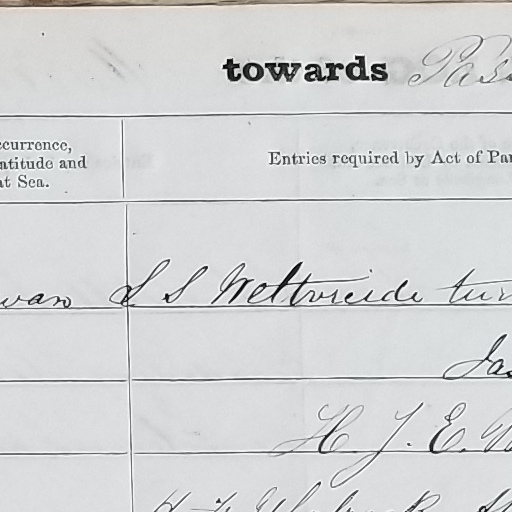 towards Pass
ccurrence,
atitude and
at Sea.
Entries required by Act of Par
wan S S Weltvreide tur
Jas
H J. E.